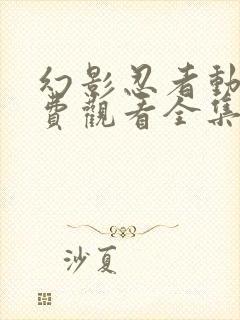 幻影忍者動
費觀看全集
沙夏